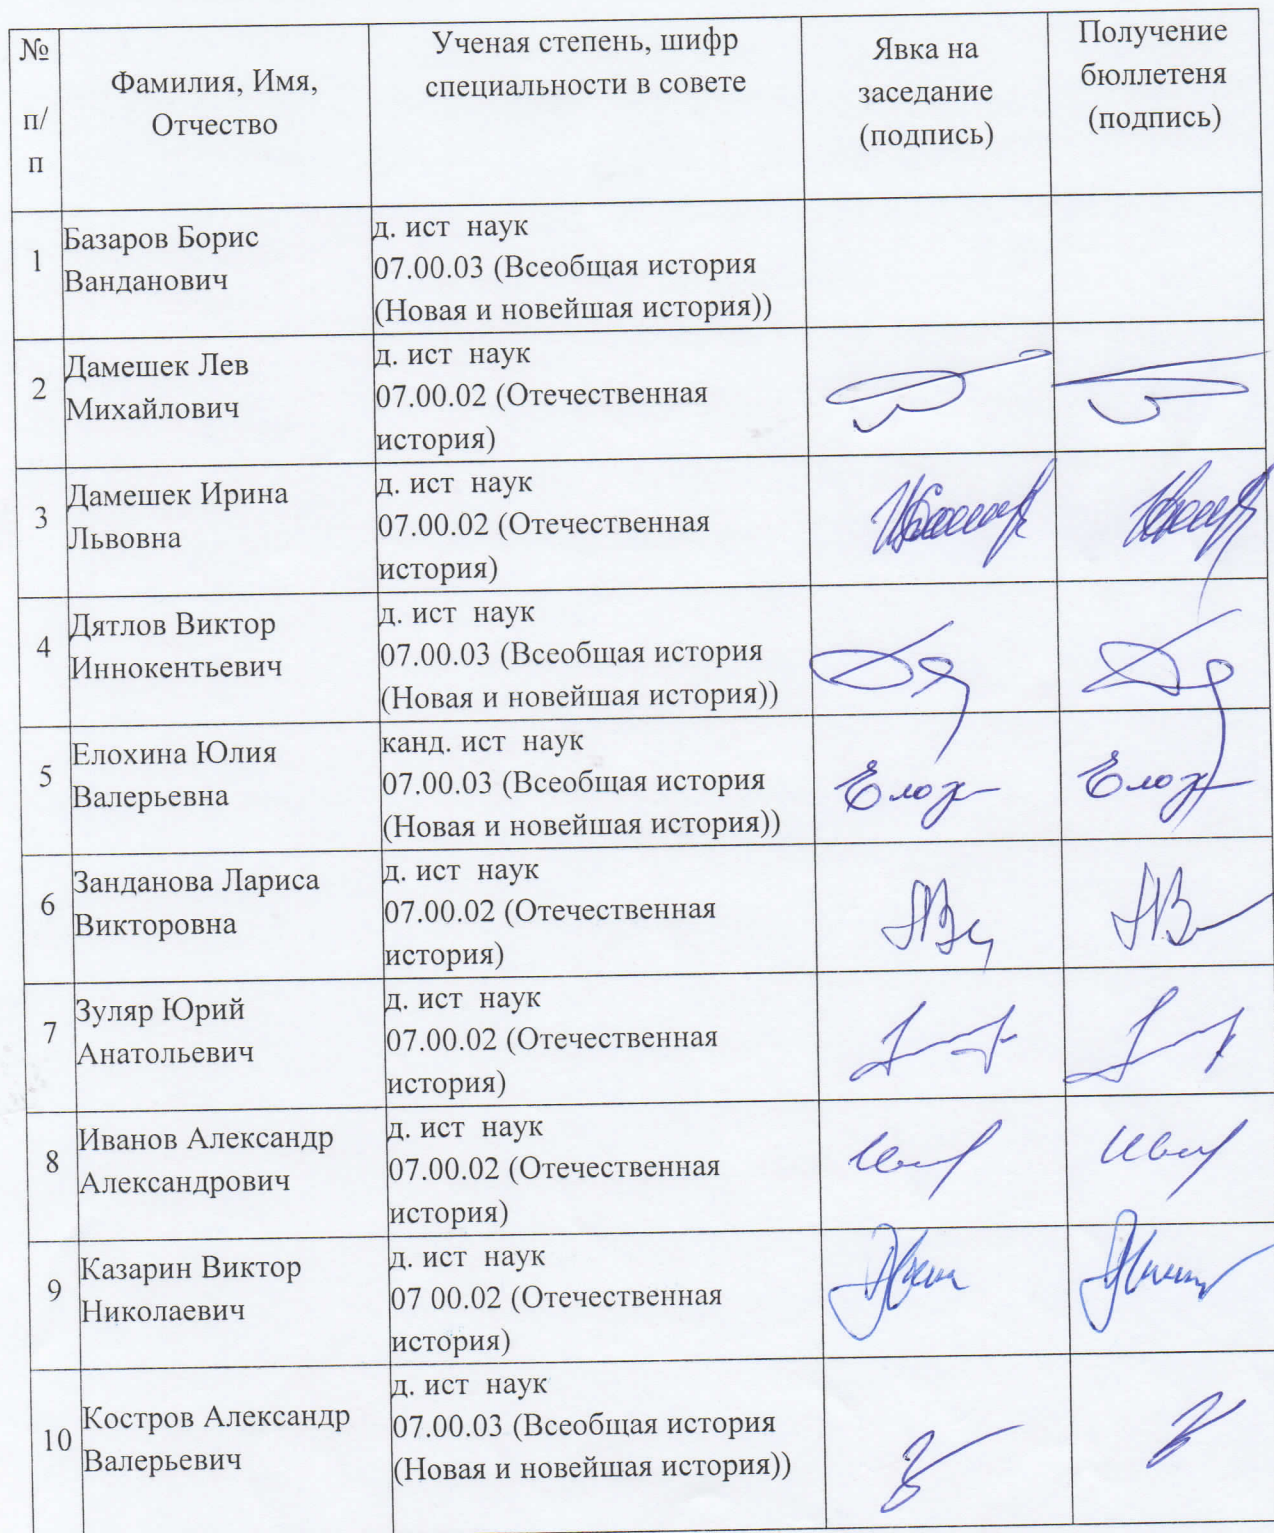 №
п/
п
Фамилия, Имя,
Отчество
Ученая степень, шифр
специальности в совете
Явка на
заседание
(подпись)
Получение
бюллетеня
(подпись)
1
Базаров Борис
Ванданович
д. ист наук
07.00.03 (Всеобщая история
(Новая и новейшая история))
2
Дамешек Лев
Михайлович
д. ист наук
07.00.02 (Отечественная
история)
3
Дамешек Ирина
Львовна
д. ист наук
07.00.02 (Отечественная
история)
4
Дятлов Виктор
Иннокентьевич
д. ист наук
07.00.03 (Всеобщая история
(Новая и новейшая история))
5
Елохина Юлия
Валерьевна
канд. ист наук
07.00.03 (Всеобщая история
(Новая и новейшая история))
6
Занданова Лариса
Викторовна
д. ист наук
07.00.02 (Отечественная
история)
7
Зуляр Юрий
Анатольевич
д. ист наук
07.00.02 (Отечественная
история)
8
Иванов Александр
Александрович
д. ист наук
07.00.02 (Отечественная
история)
9
Казарин Виктор
Николаевич
д. ист наук
07 00.02 (Отечественная
история)
10
Костров Александр
Валерьевич
д. ист наук
07.00.03 (Всеобщая история
(Новая и новейшая история))